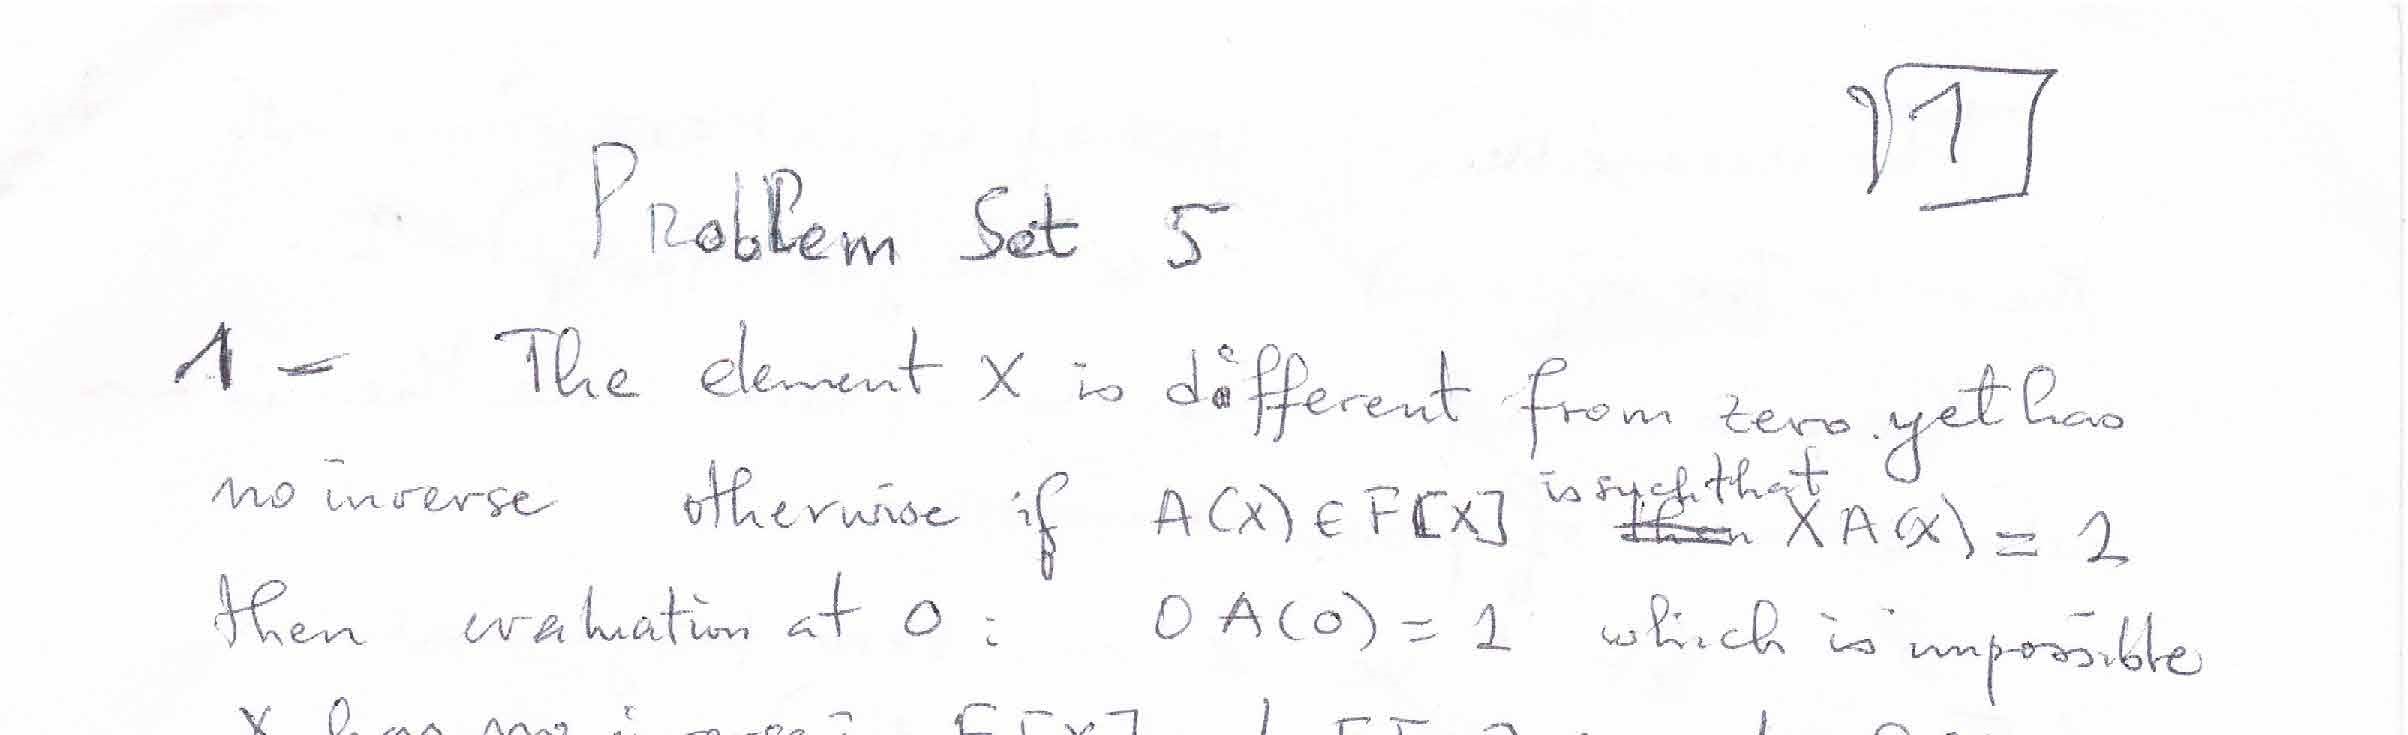 1
Problem Set 5
1 - The element X is different from zero. yet has
no inverse otherwise if A(X) ∈ F[X] is such that X A(X) = 1
then evaluation at 0 : 0 A(0) = 1 which is impossible
X has no inverse in F[X]